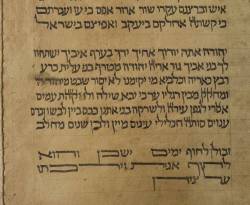 איש וברצנם עקרו שור ארור אפם כי עז ועברתם
כי קשתה אחלקם ביעקב ואפיצם בישראל
יהודה אתה יודוך אחיך ידך בערף איביך ישתחוו
לך בני אביך גור אריה יהודה מטרף בני עלית כרע
רבץ כאריה וכלביא מי יקימנו לא יסור שבט מיהודה
ומחקק מבין רגליו עד כי יבא שילה ולו יקהת עמים
אסרי לגפן עירה ולשרקה בני אתנו כבס ביין לבשו ובדם
ענבים סותה חכלילי עינים מיין ולבן שנים מחלב
זבולן לחוף ימים ישכן והוא
לחוף אניות וירכתו
על צידן